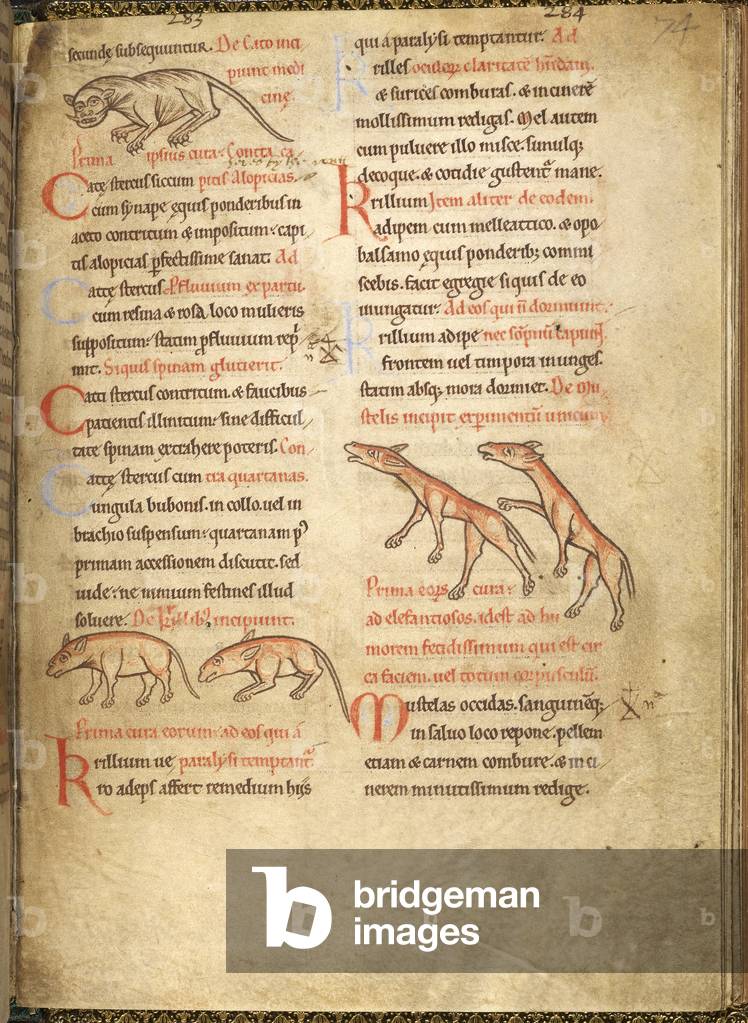 283
secunde subsequuntur. De Cato inci
piunt medi
cine.
Prima ipsius cura. Contra ca
Cate stercus siccum pitis Alopicias.
cum synape equis ponderibus in
aceto contritum & impositum. capi
tis alopicias pfectissime sanat. Ad
Catte stercus Pfluuium ex partu
cum resina & rosa, loco mulieris
suppositum. statim pfluuium rep
mit. Siquis spinam glutierit.
Catti stercus contritum. & faucibus
patientis illinitum. sine difficul
tate spinam extrahere poteris. Con
Catte stercus cum tra quartanas.
ungula bubonis. in collo. uel in
brachio suspensum. quartanam p
primam accessionem discutit. sed
uide. ne nimium festines illud
soluere. De incipiunt.
Prima cura eorum. ad eos qui a
Krillium ue paralysi temptant
ro adeps affert remedium hiis
284
74
qui a paralysi temptantur. Ad
Krilles oculorum claritate habendam.
& surices comburas. & in cinere
mollissimum redigas. Mel autem
cum puluere illo misce. simulq;
decoque. & cotidie gustent mane.
Krillium Item aliter de eodem.
adipem cum melle attico. & opo
balsamo equis ponderib; commi
scebis. facit egregie siquis de eo
inungatur. Ad eos qui n dormiunt.
Krillium adipe nec sopniu capiunt.
frontem uel timpora inunges.
statim absq; mora dormiet. De mu
stelis incipit experimentu unicum
Prima eor cura.
ad elefantiosos. idest ad hu
morem fetidissimum qui est cir
ca faciem. uel totum corpusculu.
Mustelas occidas. sanguineq;
in saluo loco repone. pellem
etiam & carnem combure. & in ci
nerem minutissimum redige.
b bridgeman
images